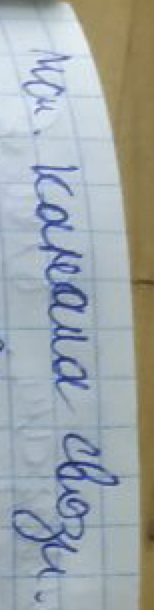 Мон. канала связи.